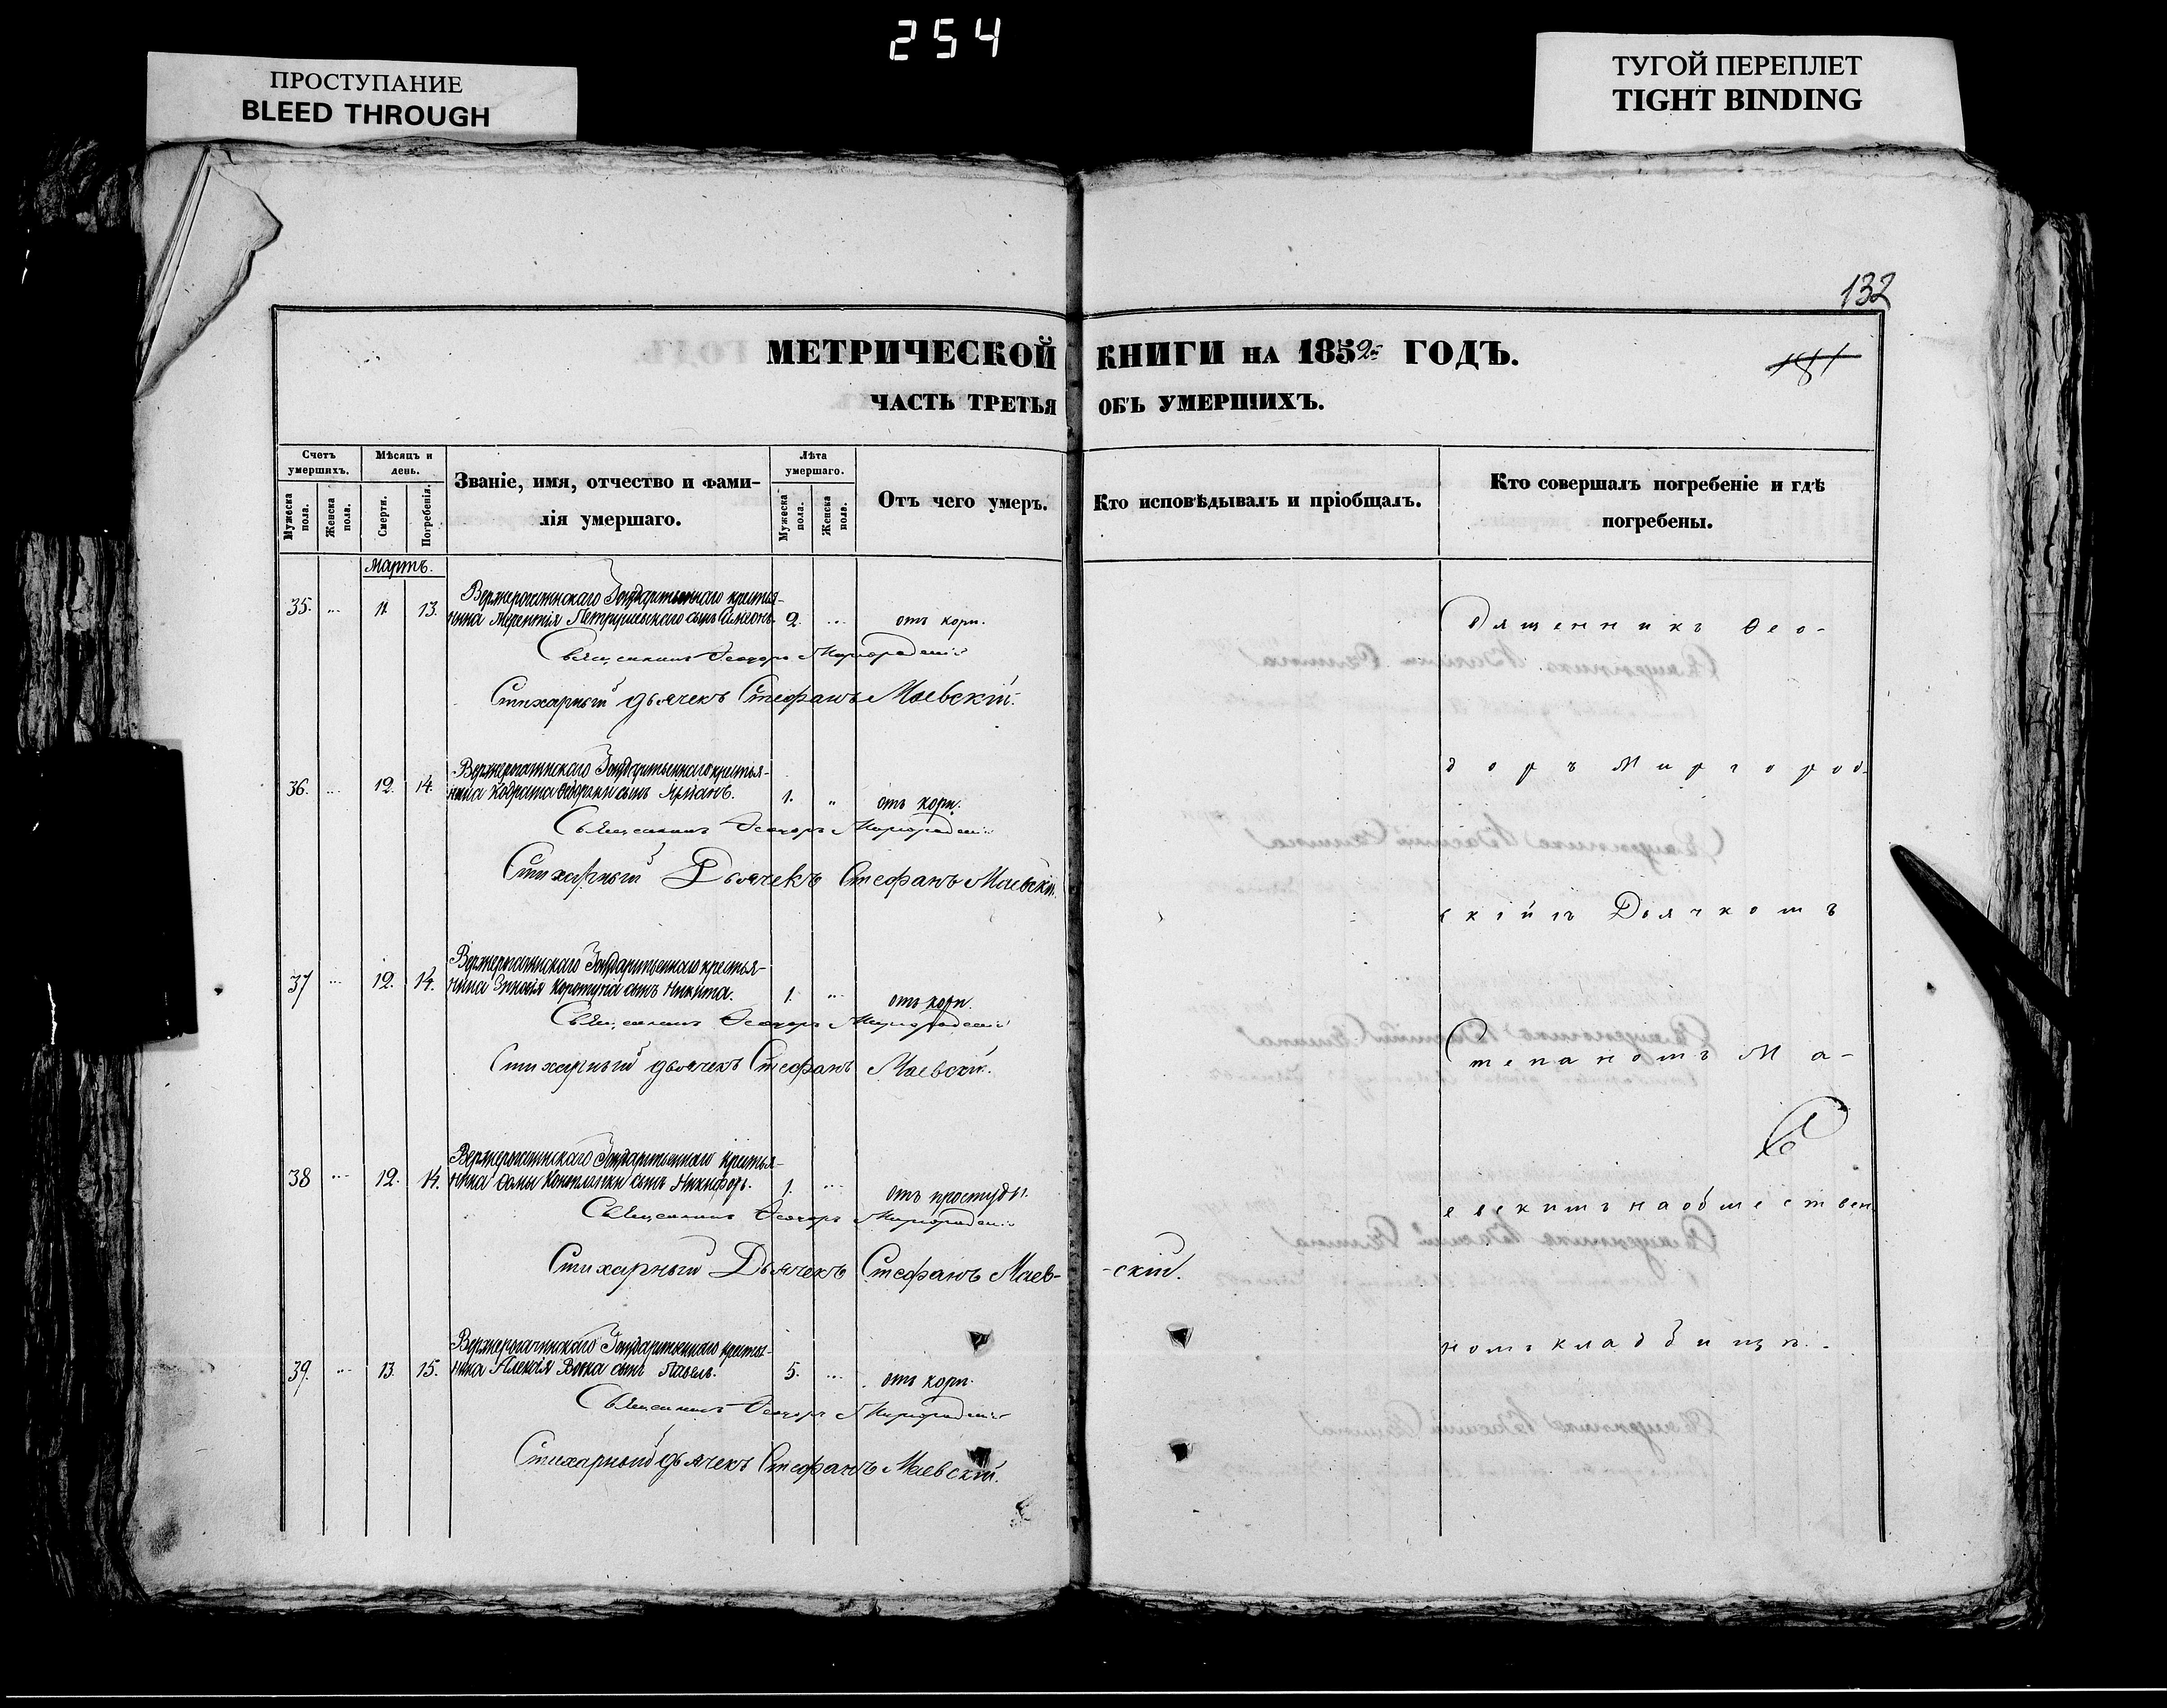 254
ПРОСТУПАНИЕ
BLEED THROUGH
ТУГОЙ ПЕРЕПЛЕТ
TIGHT BINDING
132
МЕТРИЧЕСКОЙ КНИГИ НА 1852 ГОДЪ.
ЧАСТЬ ТРЕТЬЯ ОБЪ УМЕРШИХЪ.
Счетъ умершихъ.
Мѣсяцъ и день.
Званіе, имя, отчество и фамилія умершаго.
Лѣта умершаго.
Отъ чего умеръ.
Кто исповѣдывалъ и пріобщалъ.
Кто совершалъ погребеніе и гдѣ погребены.
Мужеска пола.
Женска пола.
Смерти.
Погребенія.
Мужеска пола.
Женска пола.
Мартъ.
35. 11 13. Государственнаго крестья-
нина сынъ 2. отъ кори.
Священникъ Ѳеодоръ Миргородскій
Стихарный дьячекъ Стефанъ Маевскій.
36. 12. 14. Государственнаго крестья-
нина сынъ 1. отъ кори.
Священникъ Ѳеодоръ Миргородскій
Стихарный Дьячекъ Стефанъ Маевскій.
37 12. 14. Государственнаго крестья-
нина сынъ Никита. 1. отъ кори.
Священникъ Ѳеодоръ Миргородскій
Стихарный дьячекъ Стефанъ Маевскій.
38 12. 14. Государственнаго крестья-
нина сынъ Никифоръ. 1. отъ простуды.
Священникъ Ѳеодоръ Миргородскій
Стихарный Дьячекъ Стефанъ Маев-
-скій.
39. 13. 15. Государственнаго крестья-
нина Алексія сынъ Павелъ. 5. отъ кори.
Священникъ Ѳеодоръ Миргородскій
Стихарный дьячекъ Стефанъ Маевскій.
Священникъ Ѳео-
доръ Миргород-
скій съ Дьячкомъ
Степаномъ Ма-
евскимъ на обществен
номъ кладбищѣ.